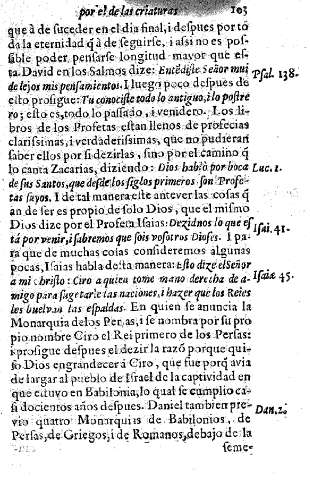 por el de las criaturas 103
que à de suceder en el dia final, i despues por to
da la eternidad q̃ à de seguirse, i assi no es pos-
sible poder pensarse longitud mayor que es-
ta. David en los Salmos dize: Entẽdiste Señor mui
de lejos mis pensamientos. I luego poco despues de
Psal. 138.
esto prosigue: Tu conociste todo lo antiguo, i lo postre
ro; esto es, todo lo passado, i venidero. Los li-
bros de los Profetas estan llenos de profecias
clarissimas, i verdaderissimas, que no pudieran
saber ellos por si dezirlas, sino por el camino q̃
lo canta Zacarias, diziendo: Dios hablò por boca
Luc. 1.
de sus Santos, que desde los siglos primeros son Profe-
tas suyos. I de tal manera este antever las cosas q̃
an de ser es propio de solo Dios, que el mismo
Dios dize por el Profeta Isaias: Dezidnos lo que es
Isai. 41.
tà por venir, i sabremos que sois vosotros Dioses. I pa
ra que de muchas cosas consideremos algunas
pocas, Isaias habla desta manera: Esto dize el Señor
Isaiæ 45.
a mi christo: Ciro a quien tomo mano derecha de a-
migo para sugetarle las naciones, i hazer que los Reies
les buelvan las espaldas. En quien se anuncia la
Monarquia de los Persas, i se nombra por su pro
pio nombre Ciro el Rei primero de los Persas:
i prosigue despues el dezir la razõ porque qui-
so Dios engrandecer à Ciro, que fue porq̃ avia
de largar al pueblo de Israel de la captividad en
que estuvo en Babilonia, lo qual se cumplio ca-
si docientos años despues. Daniel tambien pre-
Dan. 2.
vio quatro Monarquias de Babilonios, de
Persas, de Griegos, i de Romanos, debajo de la
seme-